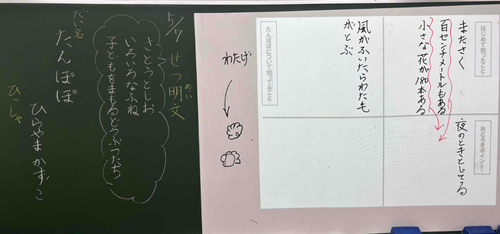 はじめて知ったこと
またさく
百センチメートルもある
小さな花が180本ある
おどろきポイント!
夜のときとじてる
たんぽぽについて知ってること
風がふいたらわた毛
がとぶ
わたげ
5/7 せつ明文
めい
さとうとしお
いろいろなふね
子どもをまもるどうぶつたち
だい名
たんぽぽ
ひっしゃ
ひらやまかずこ